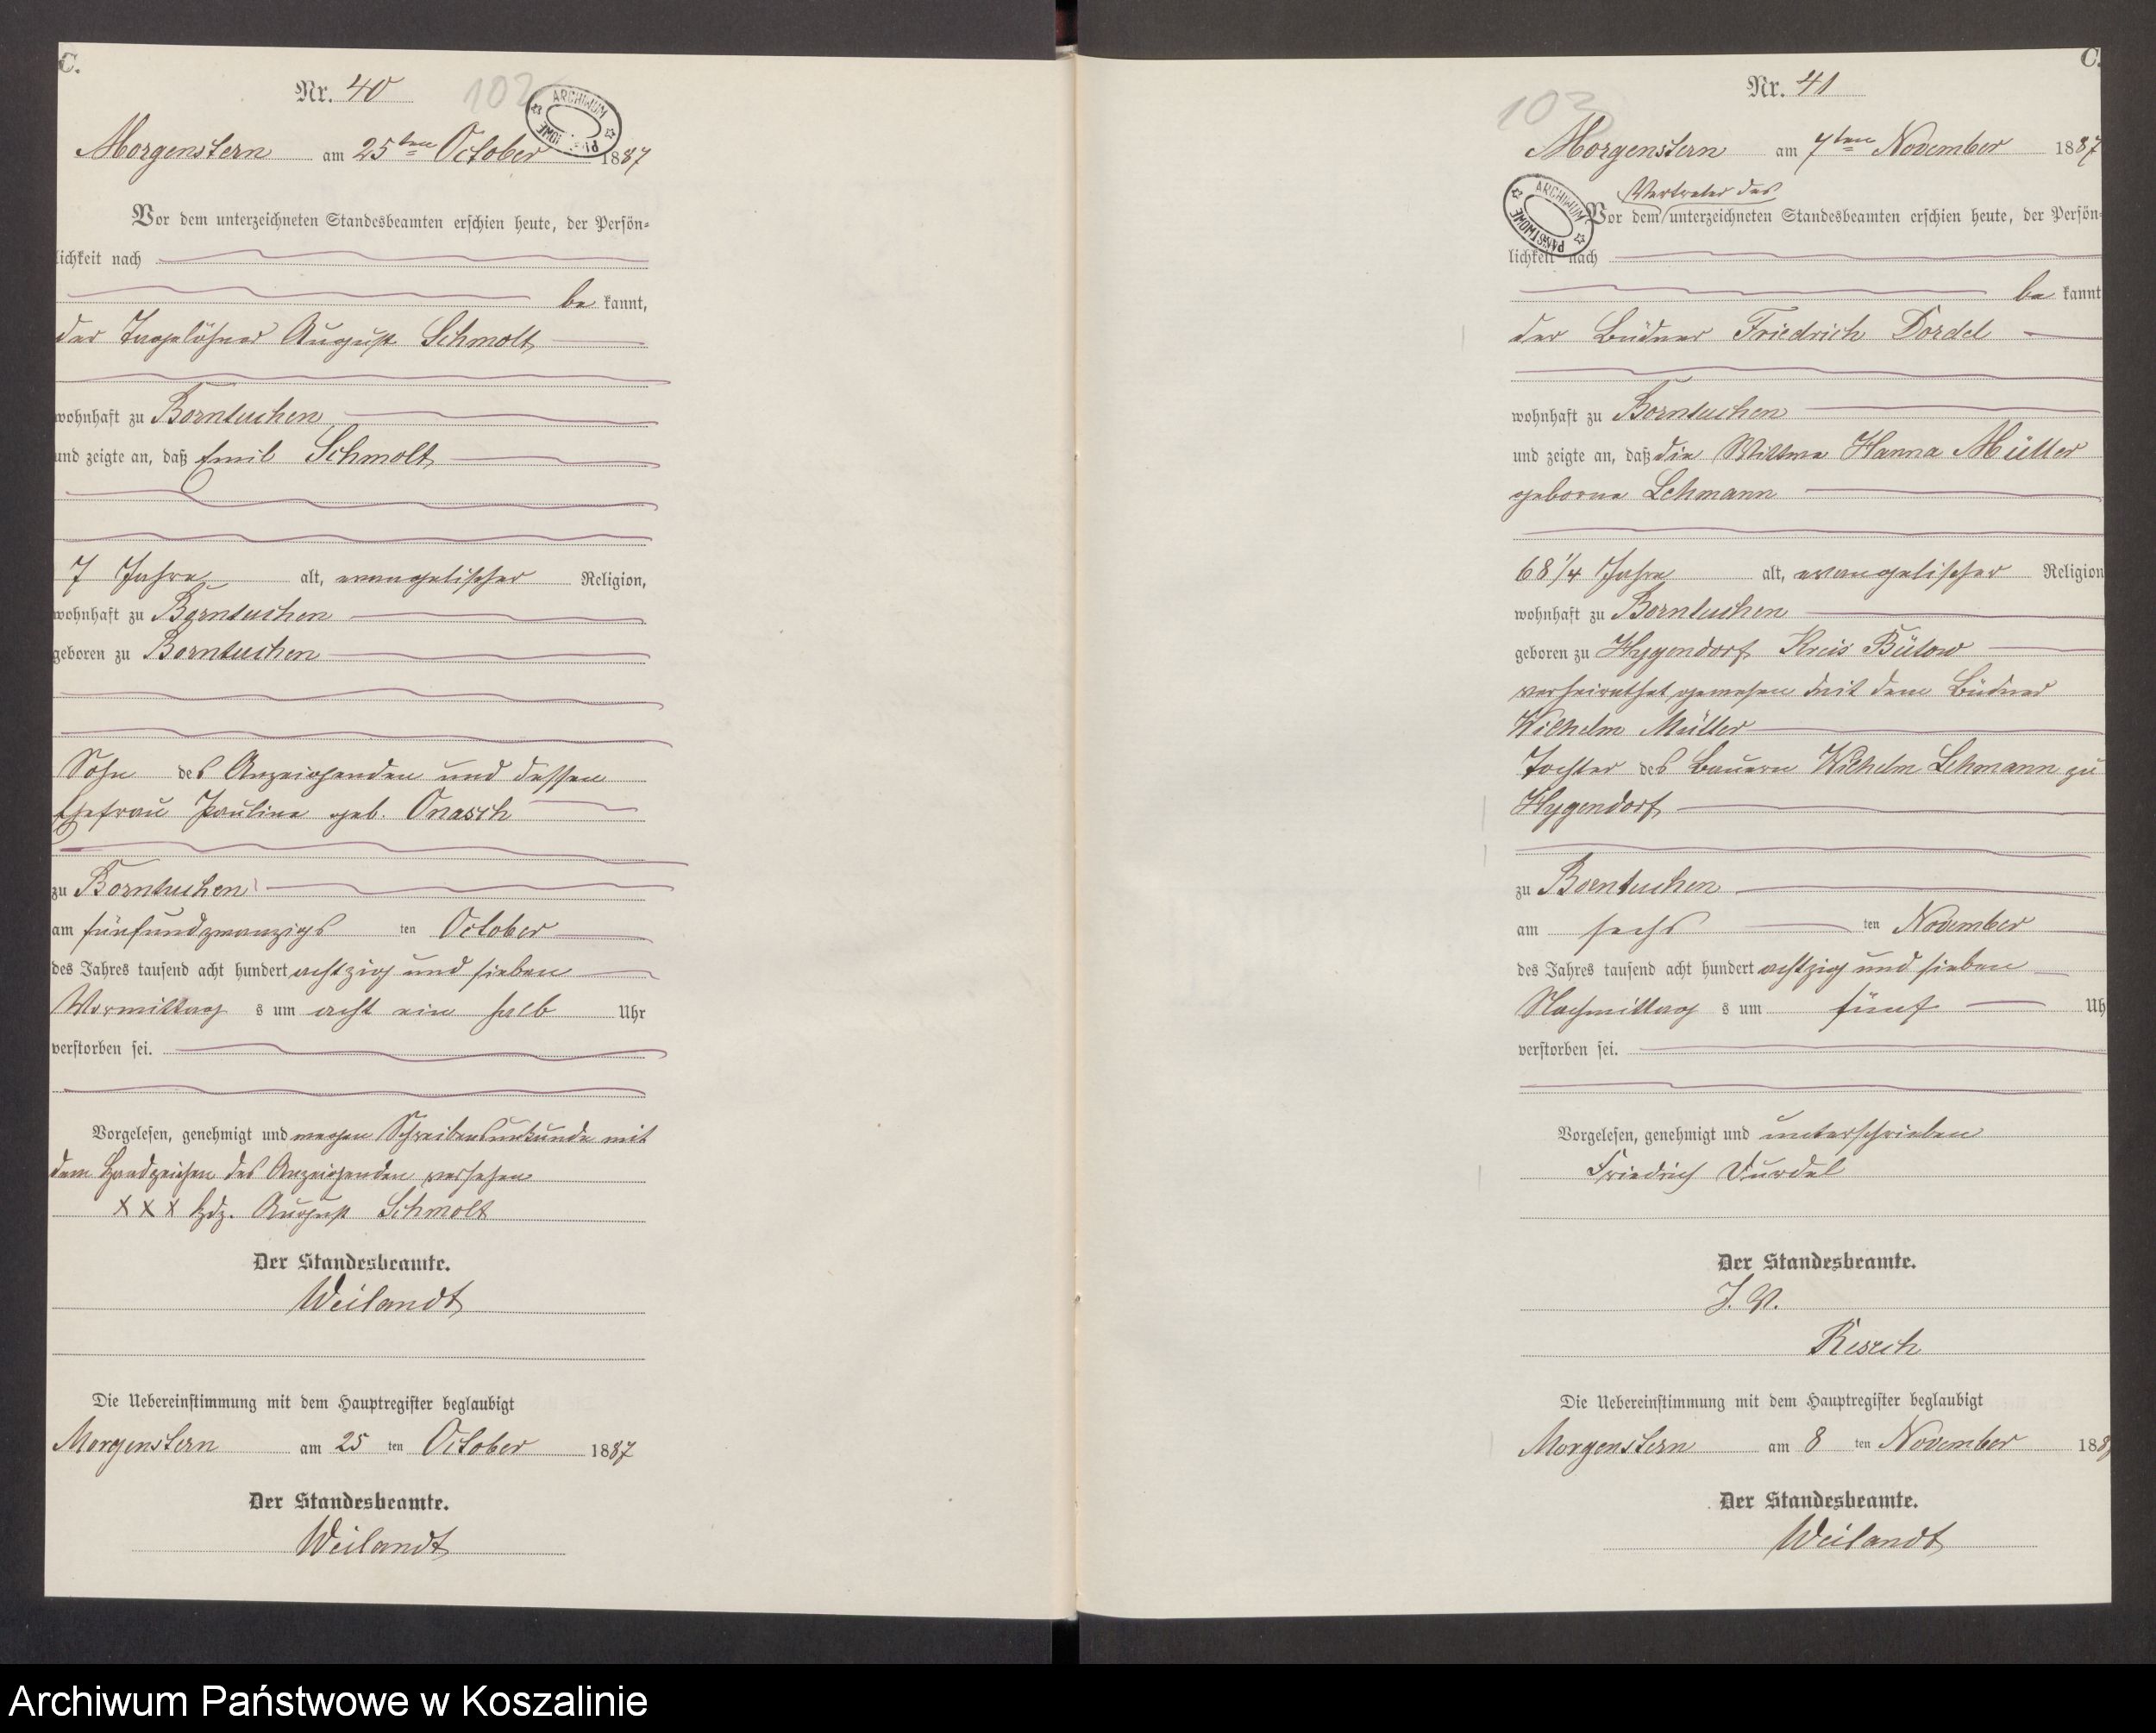 C.
Nr. 40
102
ARCHIWUM
Morgenstern am 25ten October 1887
Vor dem unterzeichneten Standesbeamten erschien heute, der Persön-
lichkeit nach
be kannt,
der Tagelöhner August Schmolt
wohnhaft zu Borntuchen
und zeigte an, daß Emil Schmolt
7 Jahre alt, evangelischer Religion,
wohnhaft zu Borntuchen
geboren zu Borntuchen
Sohn des Anzeigenden und dessen
Ehefrau Pauline geb. Onasch
zu Borntuchen
am fünfundzwanzigs ten October
des Jahres tausend acht hundert achtzig und sieben
Vormittag s um acht ein halb Uhr
verstorben sei.
Vorgelesen, genehmigt und wegen Schreibensunkunde mit
dem Handzeichen des Anzeigenden versehen
X X X Hdz. August Schmolt
Der Standesbeamte.
Weilandt
Die Uebereinstimmung mit dem Hauptregister beglaubigt
Morgenstern am 25 ten October 1887
Der Standesbeamte.
Weilandt
C.
Nr. 41
103
Morgenstern am 7ten November 1887
ARCHIWUM PAŃSTWOWE
Vertreter des
Vor dem unterzeichneten Standesbeamten erschien heute, der Persön-
lichkeit nach
be kannt
der Büdner Friedrich Dordel
wohnhaft zu Borntuchen
und zeigte an, daß die Wittwe Hanna Müller
geborne Lehmann
68 1/4 Jahre alt, evangelischer Religion
wohnhaft zu Borntuchen
geboren zu Hygendorf Kreis Bütow
verheirathet gewesen mit dem Büdner
Wilhelm Müller
Tochter des Bauern Wilhelm Lehmann zu
Hygendorf
zu Borntuchen
am sechs ten November
des Jahres tausend acht hundert achtzig und sieben
Nachmittag s um fünf Uh
verstorben sei.
Vorgelesen, genehmigt und unterschrieben
Friedrich Durdel
Der Standesbeamte.
J. V.
Resech
Die Uebereinstimmung mit dem Hauptregister beglaubigt
Morgenstern am 8 ten November 188
Der Standesbeamte.
Weilandt
Archiwum Państwowe w Koszalinie